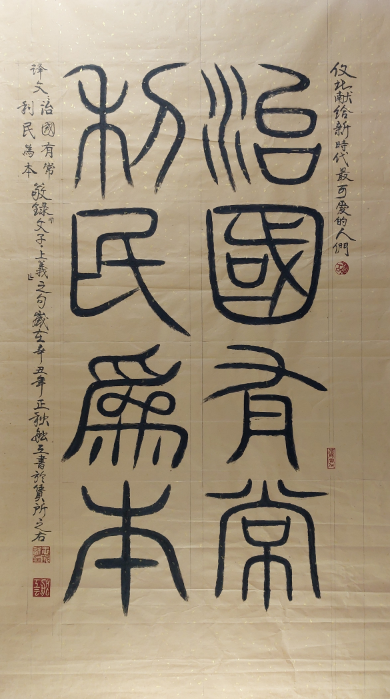 仅此献给新時代最可爱的人們
治國有常
利民為本
译文治國有常
利民為本 敬錄文子·上義之句歲在辛丑年正秋
書於
所之右